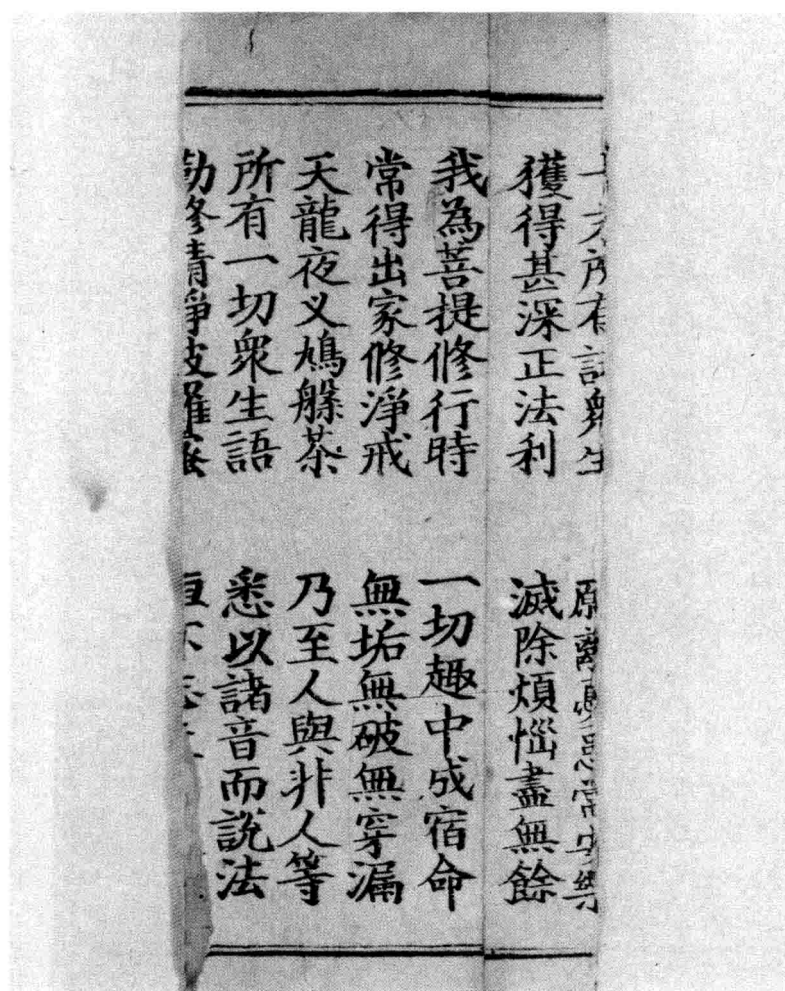 十方所有諸衆生 願離憂患常安樂
獲得甚深正法利 滅除煩惱盡無餘
我為菩提修行時 一切趣中成宿命
常得出家修淨戒 無垢無破無穿漏
天龍夜叉鳩槃茶 乃至人與非人等
所有一切衆生語 悉以諸音而說法
勤修清淨波羅蜜 恒不